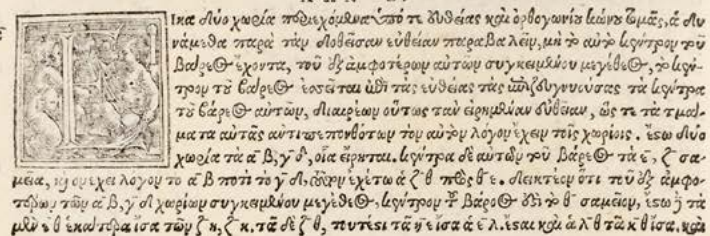 Ικα δύο χωρία περιεχόμενα ὑπό τε εὐθείας καὶ ὀρθογωνίου κώνου τομᾶς, ἃ δυ
νάμεθα παρὰ τὰν δοθεῖσαν εὐθεῖαν παραβαλεῖν, μὴ τὸ αὐτὸ κέντρον τοῦ
βάρεος ἔχοντα, τοῦ ἐξ ἀμφοτέρων αὐτῶν συγκειμένου μεγέθεος, τὸ κέν-
τρον τοῦ βάρεος ἐσεῖται ἐπὶ τᾶς εὐθείας τᾶς ἐπιζευγνυούσας τὰ κέντρα
τοῦ βάρεος αὐτῶν, διαιρέων οὕτως τὰν εἰρημέναν εὐθεῖαν, ὥς τε τὰ τμά-
ματα αὐτᾶς ἀντιπεπονθότων τὸν αὐτὸν λόγον ἔχειν τοῖς χωρίοις. ἔστω δύο
χωρία τὰ α β, γ δ, οἷα εἴρηται. κέντρα δὲ αὐτῶν τοῦ βάρεος τὰ ε, ζ σα-
μεῖα, καὶ ὃν ἔχει λόγον τὸ α β ποτὶ τὸ γ δ, τοῦτον ἐχέτω ἁ ζ θ πὸς θ ε. δεικτέον ὅτι τοῦ ἐξ ἀμφο-
τέρων τῶν α β, γ δ χωρίων συγκειμένου μεγέθεος, κέντρον τοῦ βάρεος ἐστὶ τὸ θ σαμεῖον, ἔστω ᾗ τᾷ
μὲν ε θ ἑκατέρα ἴσα τῶν ζ η, ζ κ, τᾷ δὲ ζ θ, τουτέστι τᾷ η ε ἴσα ἁ ε λ. ἔσται καὶ ἁ λ θ τᾷ κ θ ἴσα. καὶ